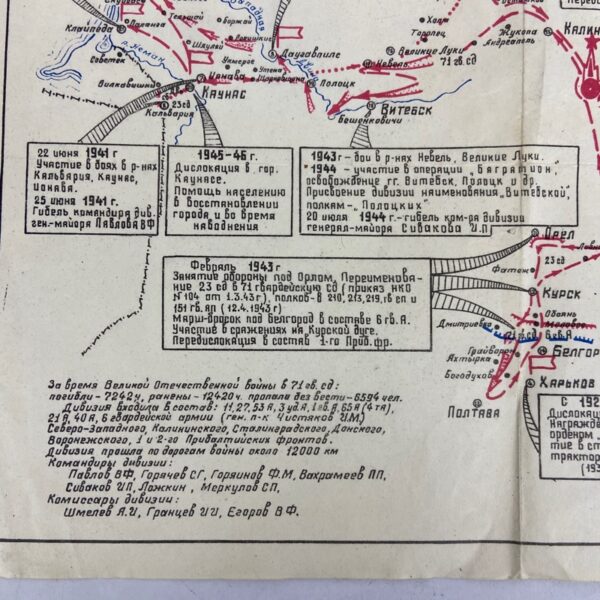 Клайпеда
Паланга
Тельшай
Боржай
Шяуляй
р. Неман
Советск
Вилкавишки
Укмерге
Утена
Ионава
Каунас
23 сд
Кальвария
Западная
Даугавпилс
Полоцк
Невель
Великие Луки
71 гв.сд
Холм
Торопец
Жукопа
Андреаполь
Витебск
Бешенковичи
22 июня 1941 г
Участие в боях в р-нах
Кальвария, Каунас,
Ионава.
25 июня 1941 г
Гибель командира див.
ген-майора Павлова ВФ
1945-46 г.
Дислокация в гор.
Каунасе.
Помощь населению
в восстановлении
города и во время
наводнения
1943г- бои в р-нах Невель, Великие Луки.
1944 - участие в операции „Багратион",
освобождение гг. Витебск, Полоцк и др.
Присвоение дивизии наименования „Витебской",
полкам-„Полоцких"
20 июля 1944 г.-гибель ком-ра дивизии
генерал-майора Сивакова И.П
Февраль 1943 г
Занятие обороны под Орлом, Переименова-
ние 23 сд в 71 гвардейскую СД (приказ НКО
№ 104 от 1.3.43 г), полков-в 210, 213, 219, гв сп и
151 гв. ап (12.4.1943 г)
Марш-бросок под Белгород в составе 6 гв. А.
Участие в сражениях на Курской дуге.
Передислокация в состав 1-го Приб.фр.
Орёл
23 сд
Фатеж
Курск
Обоянь
Дмитриевка
Грайворон
Ахтырка
Богодухов
Белгор
Харьков
Полтава
С 192
Дислокац
Награжде
орденом
тие в ст
трактор
(193
За время Великой Отечественной войны в 71 гв. сд:
погибли-7242 ч, ранены-12420 ч. пропала без вести-6594 чел.
Дивизия входила в состав: 11, 27, 53 А, 3 уд.А, 1 гв.А, 65 А (4 та),
21 А, 40 А, 6 гвардейской армии (ген. п-к Чистяков И.М.)
Северо-Западного, Калининского, Сталинградского, Донского,
Воронежского, 1 и 2-го Прибалтийских фронтов.
Дивизия прошла по дорогам войны около 12000 км
Командиры дивизии:
Павлов В.Ф, Горячев С.Г, Горяинов Ф.М, Вахрамеев П.П,
Сиваков И.П, Ложкин, Меркулов С.П,
Комиссары дивизии:
Шмелев А.И, Гранцев И.И, Егоров В.Ф.